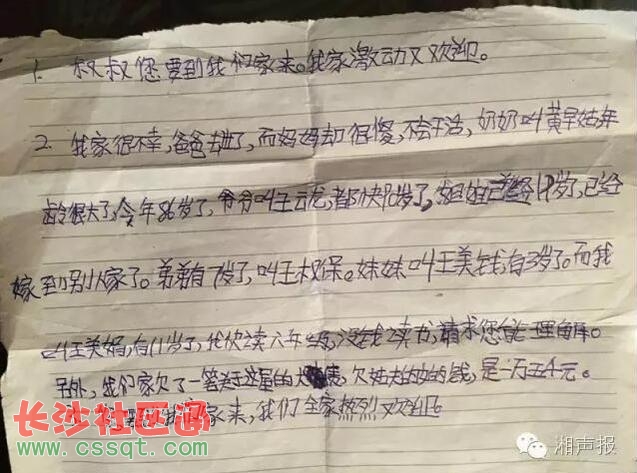 1. 叔叔您要到我们家来。我家激动又欢迎。
2. 我家很不幸,爸爸去世了,而妈妈却很傻,不会干活,奶奶叫黄早姑,年
龄很大了,今年86岁了,爷爷叫王云龙,都快90岁了。姐姐已经19岁了,已经
嫁到别人家了。弟弟有7岁了,叫王权保。妹妹叫王美钱,有3岁了。而我
叫王美娟,有11岁了,我快读六年级,没钱读书,请求您能理解。
另外,我们家欠了一笔关于这屋的大债,欠姑夫的钱,是一万五千元。
家来,我们全家热烈欢迎。
长沙社区通
www.cssqt.com
湘声报